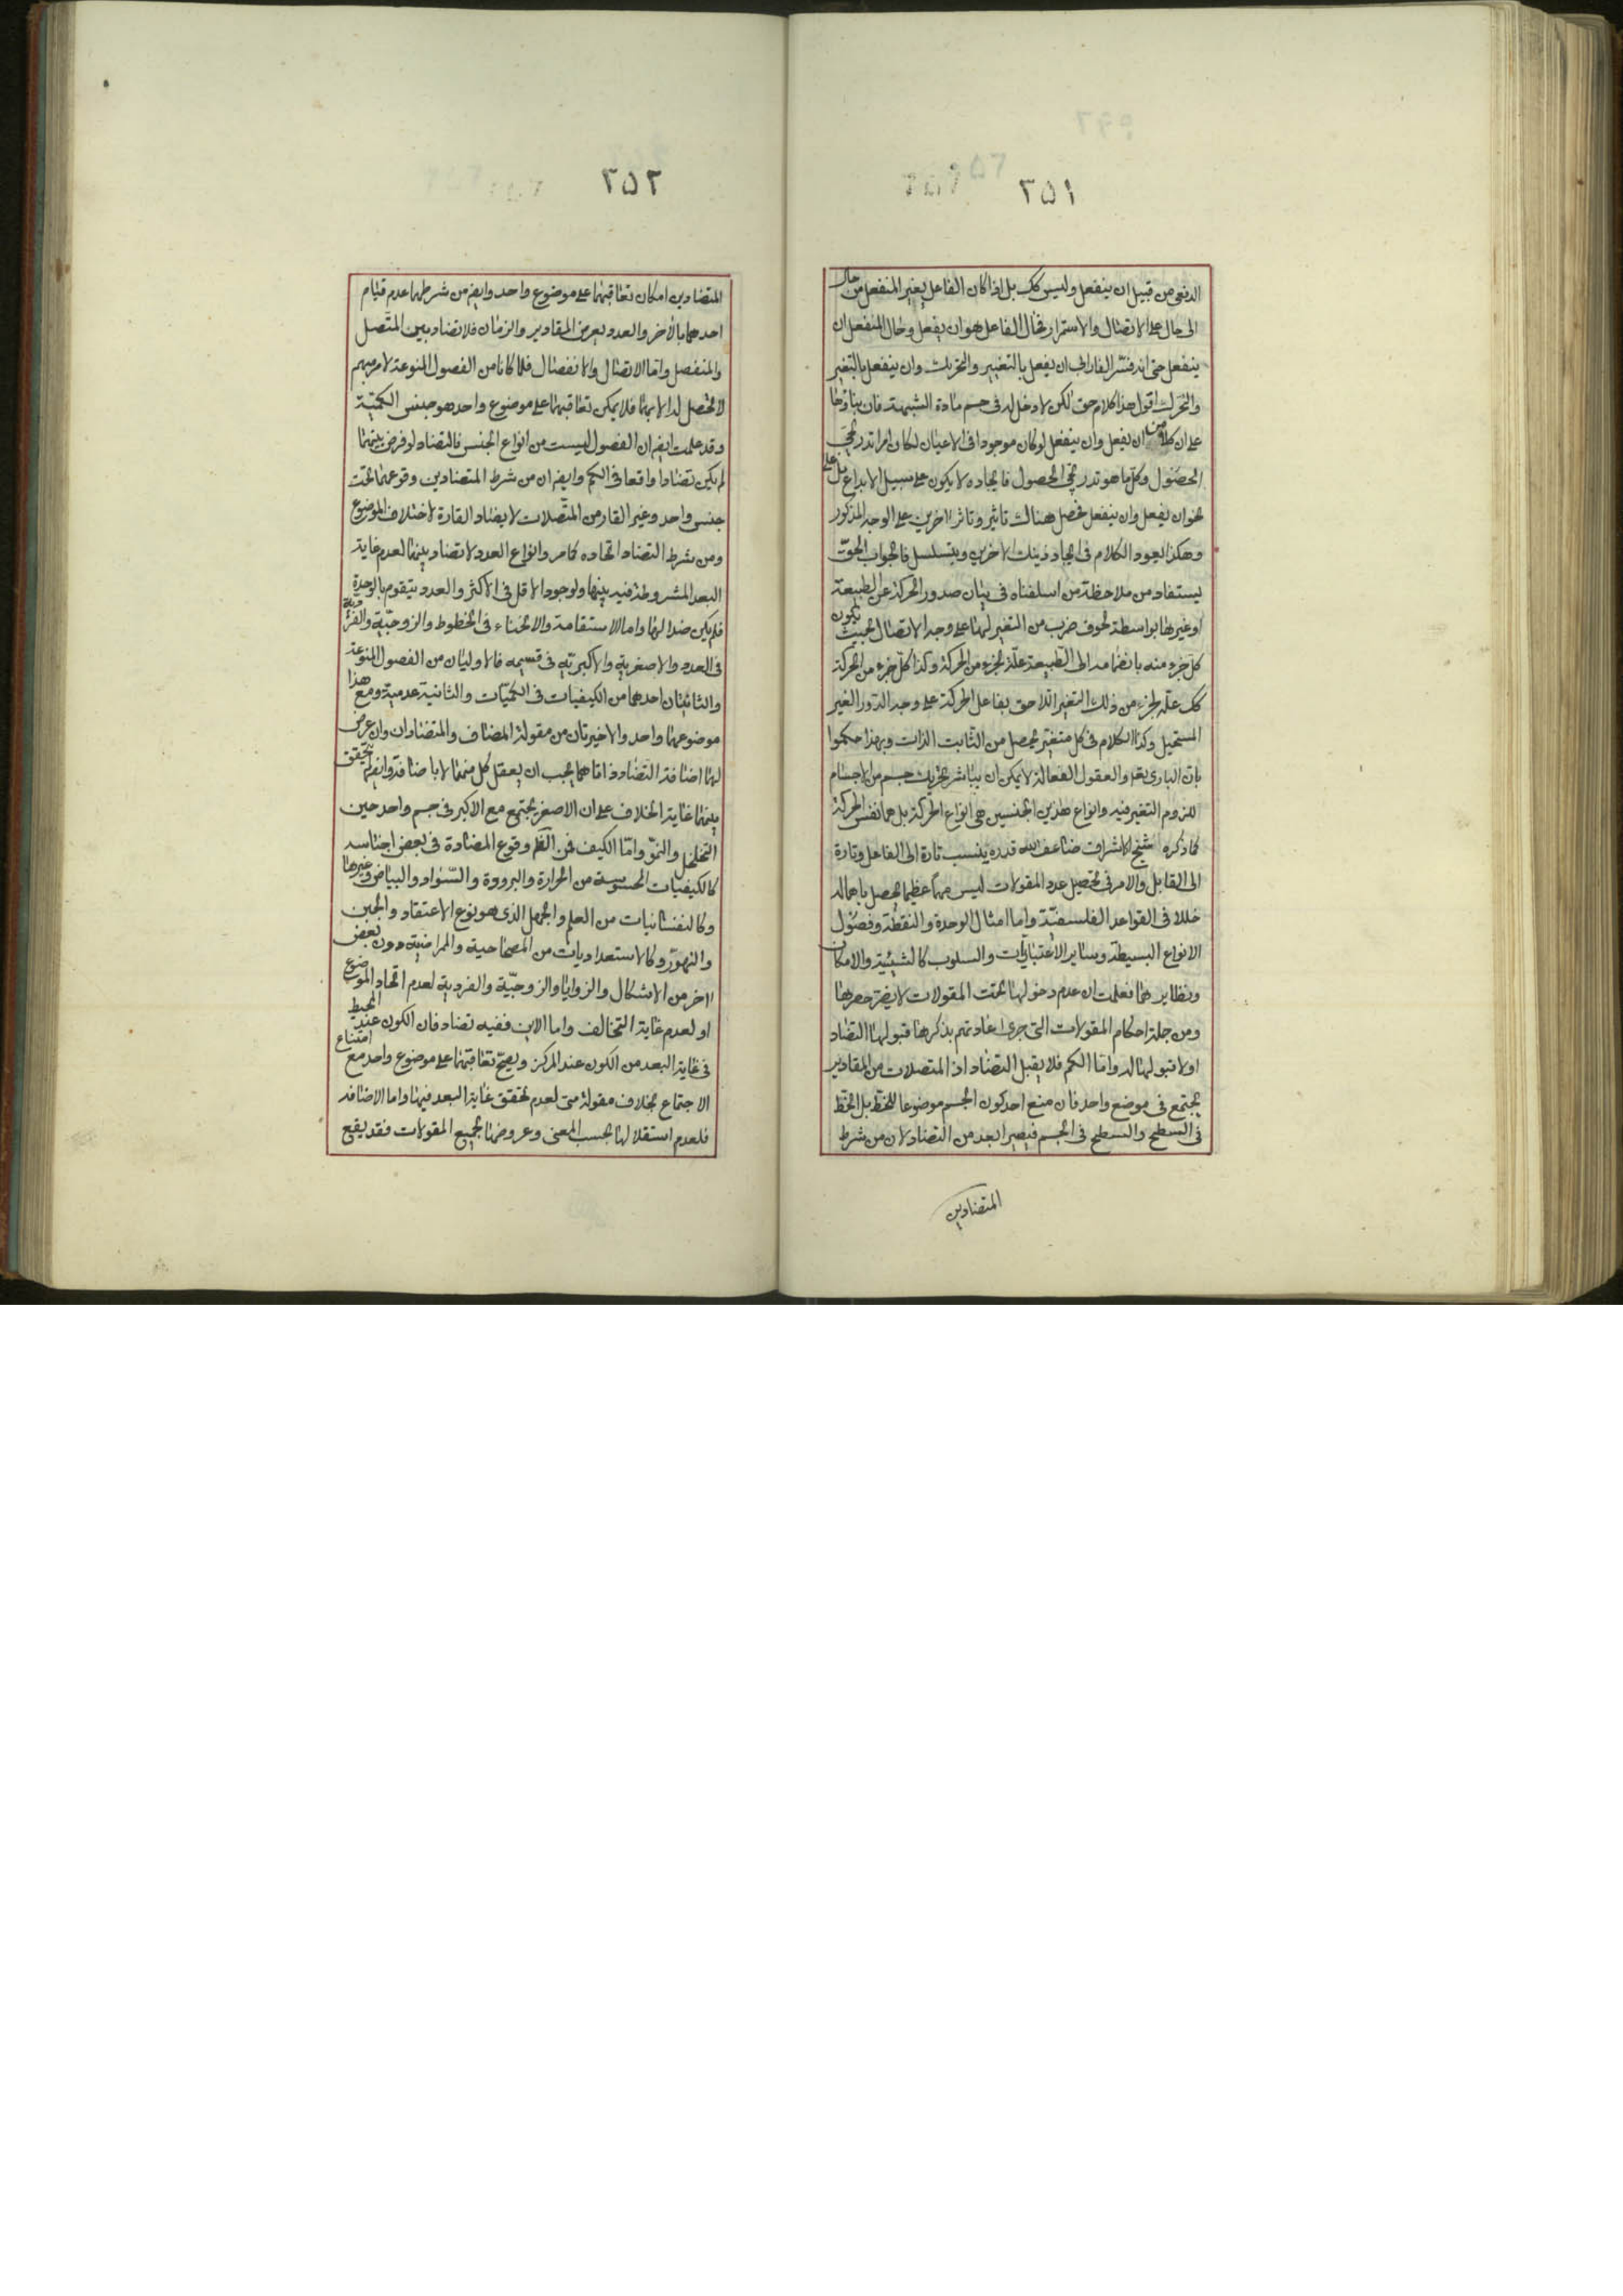 ٢٥١
الدفعى من قبيل ان ينفعل وليس كك بل اذا كان الفاعل يغير المنفعل من حال
الى حال على الاتصال والاستمرار فحال الفاعل هو ان يفعل وحال المنفعل ان
ينفعل حتى انه فسّر الفارابى ان يفعل بالتغيير والتحريك وان ينفعل بالتغير
والتحرك اقول هذا كلام حق لكن لا دخل له فى حسم مادة الشبهة فان بناؤها
على ان كلا من ان يفعل وان ينفعل لو كان موجودا فى الاعيان لكان امرا تدريجى
الحصول وكل ما هو تدريجى الحصول فايجاده لا يكون على سبيل الابداع بل على
نحو ان يفعل وان ينفعل فحصل هناك تاثير وتاثر اخرين على الوجه المذكور
وهكذا يعود الكلام فى ايجاد ذينك الاخرين ويتسلسل فالجواب الحقّ
يستفاد من ملاحظة من اسلفناه فى بيان صدور الحركة عن الطبيعة
او غيرها بواسطة لحوق ضرب من التغير لهما على وجه الاتصال بحيث يكون
كل جزء منه بانضمامه الى الطبيعة علّة لجزء من الحركة وكذا كل جزء من الحركة
كك علّة لجزء من ذلك التغير اللاحق بفاعل الحركة على وجه الدور الغير
المستحيل وكذا الكلام فى كل متغير يحصل من الثابت الذات وبهذا حكموا
بان البارى تعم والعقول الفعالة لا يمكن ان يباشر تحريك جسم من الاجسام
للزوم التغير فيه وانواع هذين الجنسين هى انواع الحركة بل هما نفس الحركة
كما ذكره شيخ الاشراف ضاعف الله قدره ينسب تارة الى الفاعل وتارة
الى القابل والامر فى تحصيل عدد المقولات ليس مهمّا عظيما يحصل باهماله
خللا فى القواعد الفلسفيّة واما امثال الوحدة والنقطة وفصول
الانواع البسيطة وساير الاعتباريات والسلوب كالشيئية والامكان
ونظايرهما فعلمت ان عدم دخولها تحت المقولات لا يضرّ حصرها
ومن جملة احكام المقولات التى جرى عادتهم بذكرها قبولها التضاد
او لا قبولها له واما الكم فلا يقبل التضاد اذ المتصلات من المقادير
يجتمع فى موضع واحد فان منع احد كون الجسم موضوعا للخط بل الخط
فى السطح والسطح فى الجسم فيصير ابعد من التضاد لان من شرط
المتضادين
٢٥٢
المتضادين امكان تعاقبهما على موضوع واحد وايض من شرطهما عدم قيام
احدهما بالاخر والعدد يعرض المقادير والزمان فلا تضاد بين المتّصل
والمنفصل واما الاتصال والانفصال فلما كانا من الفصول المنوعة لامر مبهم
لا تحصل له الا بهما فلا يمكن تعاقبهما على موضوع واحد هو جنس الكميّة
وقد علمت ايض ان الفصول ليست من انواع الجنس فالتضاد لو فرض بينهما
لم يكن تضادا واقعا فى الكم وايض ان من شرط المتضادين وقوعهما تحت
جنس واحد وغير القار من المتّصلات لا يضاد القارة لاختلاف الموضوع
ومن شرط التضاد اتحاده كما مر وانواع العدد لا تضاد بينها لعدم غاية
البعد المشروطة فيه بينها ولوجود الاقل فى الاكثر والعدد يتقوم بالوحدة
فلم يكن ضدا لها واما الاستقامة والانحناء فى الخطوط والزوجيّة والفردية
فى العدد والاصغرية والاكبريّة فى قسيمه فالاوليان من الفصول المنوعة
والثانيتان احدهما من الكيفيات فى الكميّات والثانية عدمية ومع هذا
موضوعهما واحد والاخيرتان من مقولة المضاف والمتضادان وان عرض
لهما اضافة التضاد فذاتاهما يجب ان يعقل كل منهما لا باضافة وايض لم يتحقق
بينهما غاية الخلاف على ان الاصغر يجتمع مع الاكبر فى جسم واحد حين
التخلخل والنموّ وامّا الكيف فمن الظّم وقوع المضادة فى بعض اجناسه
كالكيفيات المحسوسة من الحرارة والبرودة والسّواد والبياض وغيرها
وكالنفسانيات من العلم والجهل الذى هو نوع الاعتقاد والجبن
والتهوّر وكالاستعداديات من المصحاحية والممراضية دون بعض
اخر من الاشكال والزوايا والزوجيّة والفردية لعدم اتحاد الموضوع
او لعدم غاية التخالف واما الاين ففيه تضاد فان الكون عند المحيط
فى غاية البعد من الكون عند المركز ويصحّ تعاقبهما على موضوع واحد مع امتناع
الاجتماع بخلاف مقولة متى لعدم تحقق غاية البعد فيها واما الاضافة
فلعدم استقلالها بحسب المعنى وعروضها لجميع المقولات فقد يقع